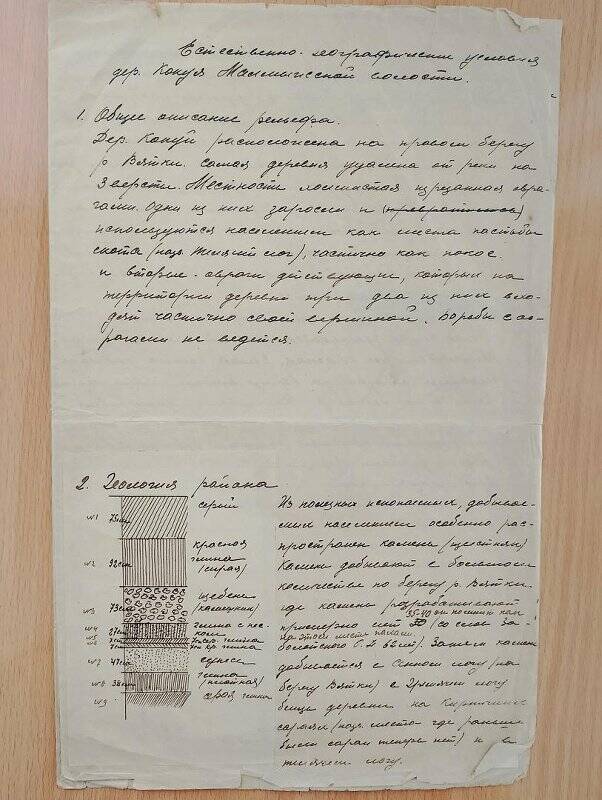 Естественно-географические условия
дер. Кокуй Малмыжской волости.
1. Общее описание рельефа.
Дер. Кокуй расположена на правом берегу
р Вятки. Самая деревня удалена от реки на
3 версты. Местность холмистая изрезанная овра-
гами. Одни из них заросли и (превратились)
используются населением как места пастьбы
скота (назв. лог), частично как покос
и вторые - овраги действующие, которых на
территории деревни три два из них вхо-
дят частично своей вершиной. Борьбы с ов-
рагами не ведется.
2. Геология района
№1 75см серый
№2 92см красная глина (сырая)
№3 73см щебень (камешник)
№4 27см глина с пес-ком
№5 глина
№6 7см кр. глина
№7 47см супесь
№8 38см глина (плотная)
№9 серая глина
Из полезных ископаемых, добывае-
мых населением особенно рас-
пространен камень
Камень добывают в большом
количестве по берегу р. Вятки
где камень разрабатывают
35-40 он
примерно лет (со слов
на этом месте
6 лет). Затем камень
добывается в логу (на
берегу Вятки) в логу
выше деревни на Кирпичных
сараях (назв. места где раньше
были сараи теперь нет) и в
логу.